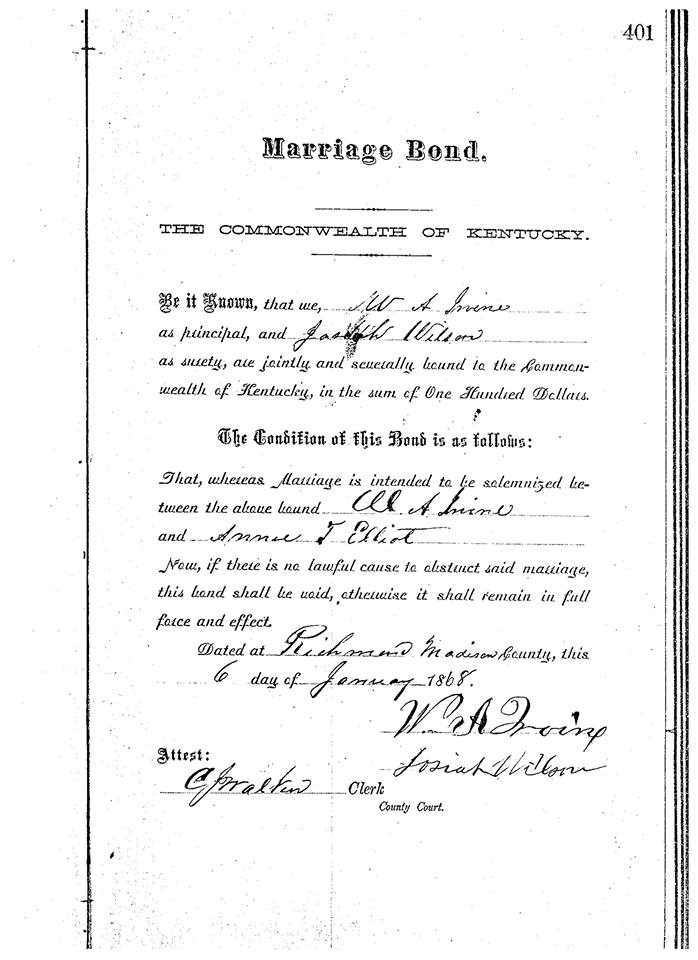 401
Marriage Bond.
THE COMMONWEALTH OF KENTUCKY.
Be it Known, that we, W A Irvine
as principal, and Wilson
as surety, are jointly and severally bound to the Common-
wealth of Kentucky, in the sum of One Hundred Dollars.
The Condition of this Bond is as follows:
That, whereas Marriage is intended to be solemnized be-
tween the above bound W. A Irvine
and Annie T Elliot
Now, if there is no lawful cause to obstruct said marriage,
this bond shall be void, otherwise it shall remain in full
force and effect.
Dated at Richmond Madison County, this
6 day of January 1868.
Wm A Irvine
Attest: Josiah Wilson
C J Walker Clerk
County Court.